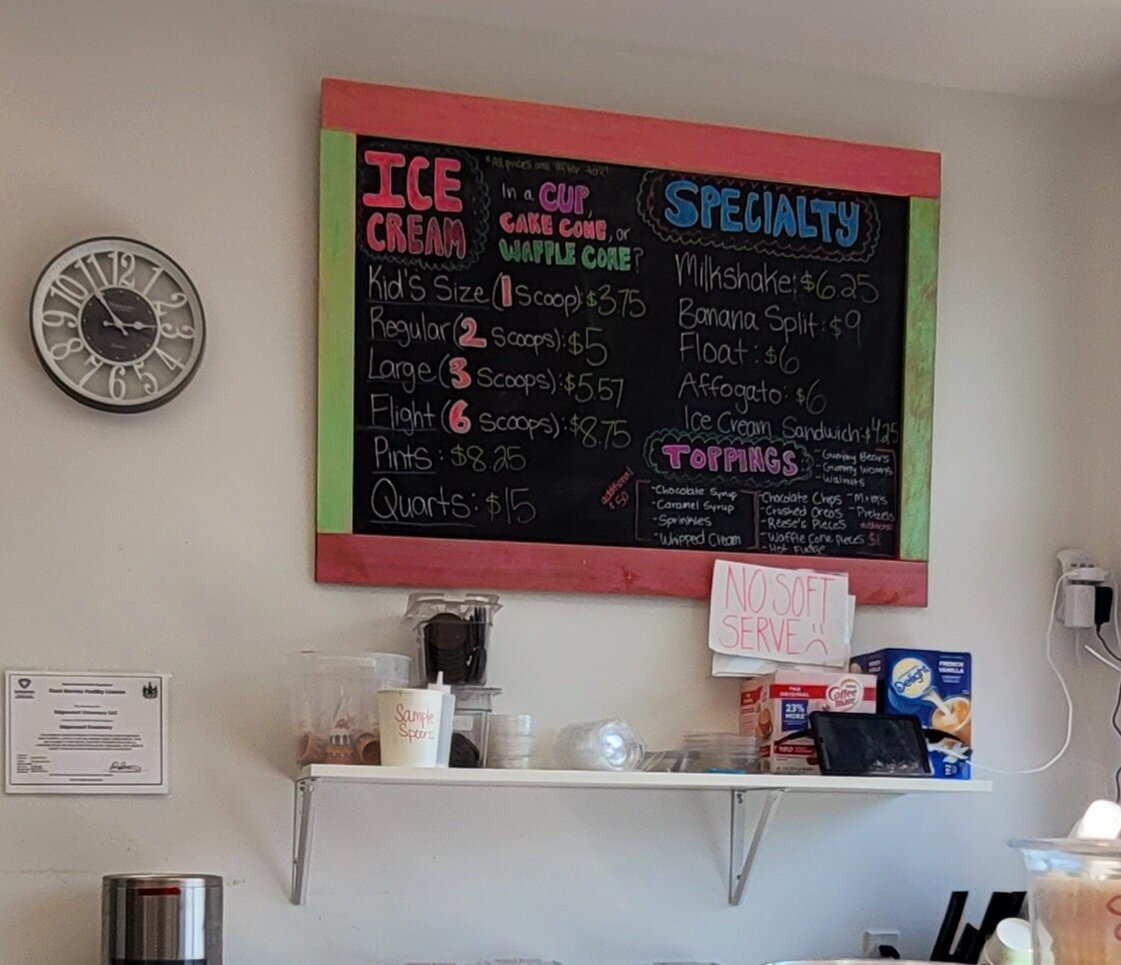 ICE
CREAM
*All prices are after tax!
In a CUP,
CAKE CONE, or
WAFFLE CONE?
Kid's Size (1 Scoop): $3.75
Regular (2 Scoops): $5
Large (3 Scoops): $5.57
Flight (6 Scoops): $8.75
Pints: $8.25
Quarts: $15
SPECIALTY
Milkshake: $6.25
Banana Split: $9
Float: $6
Affogato: $6
Ice Cream Sandwich: $4.25
TOPPINGS
additional
$.50
-Chocolate Syrup
-Caramel Syrup
-Sprinkles
-Whipped Cream
-Gummy Bears
-Gummy Worms
-Walnuts
-Chocolate Chips -M+M's
-Crushed Oreos -Pretzels
-Reese's Pieces
-Waffle Cone Pieces
-Hot Fudge
additional
$1
NO SOFT
SERVE :(
12
1
2
3
4
5
6
7
8
9
10
11
Food Service Facility License
Edgewood Creamery LLC
Sample
Spoons
THE ORIGINAL
23%
MORE
180
Coffee
mate
Delight
FRENCH
VANILLA